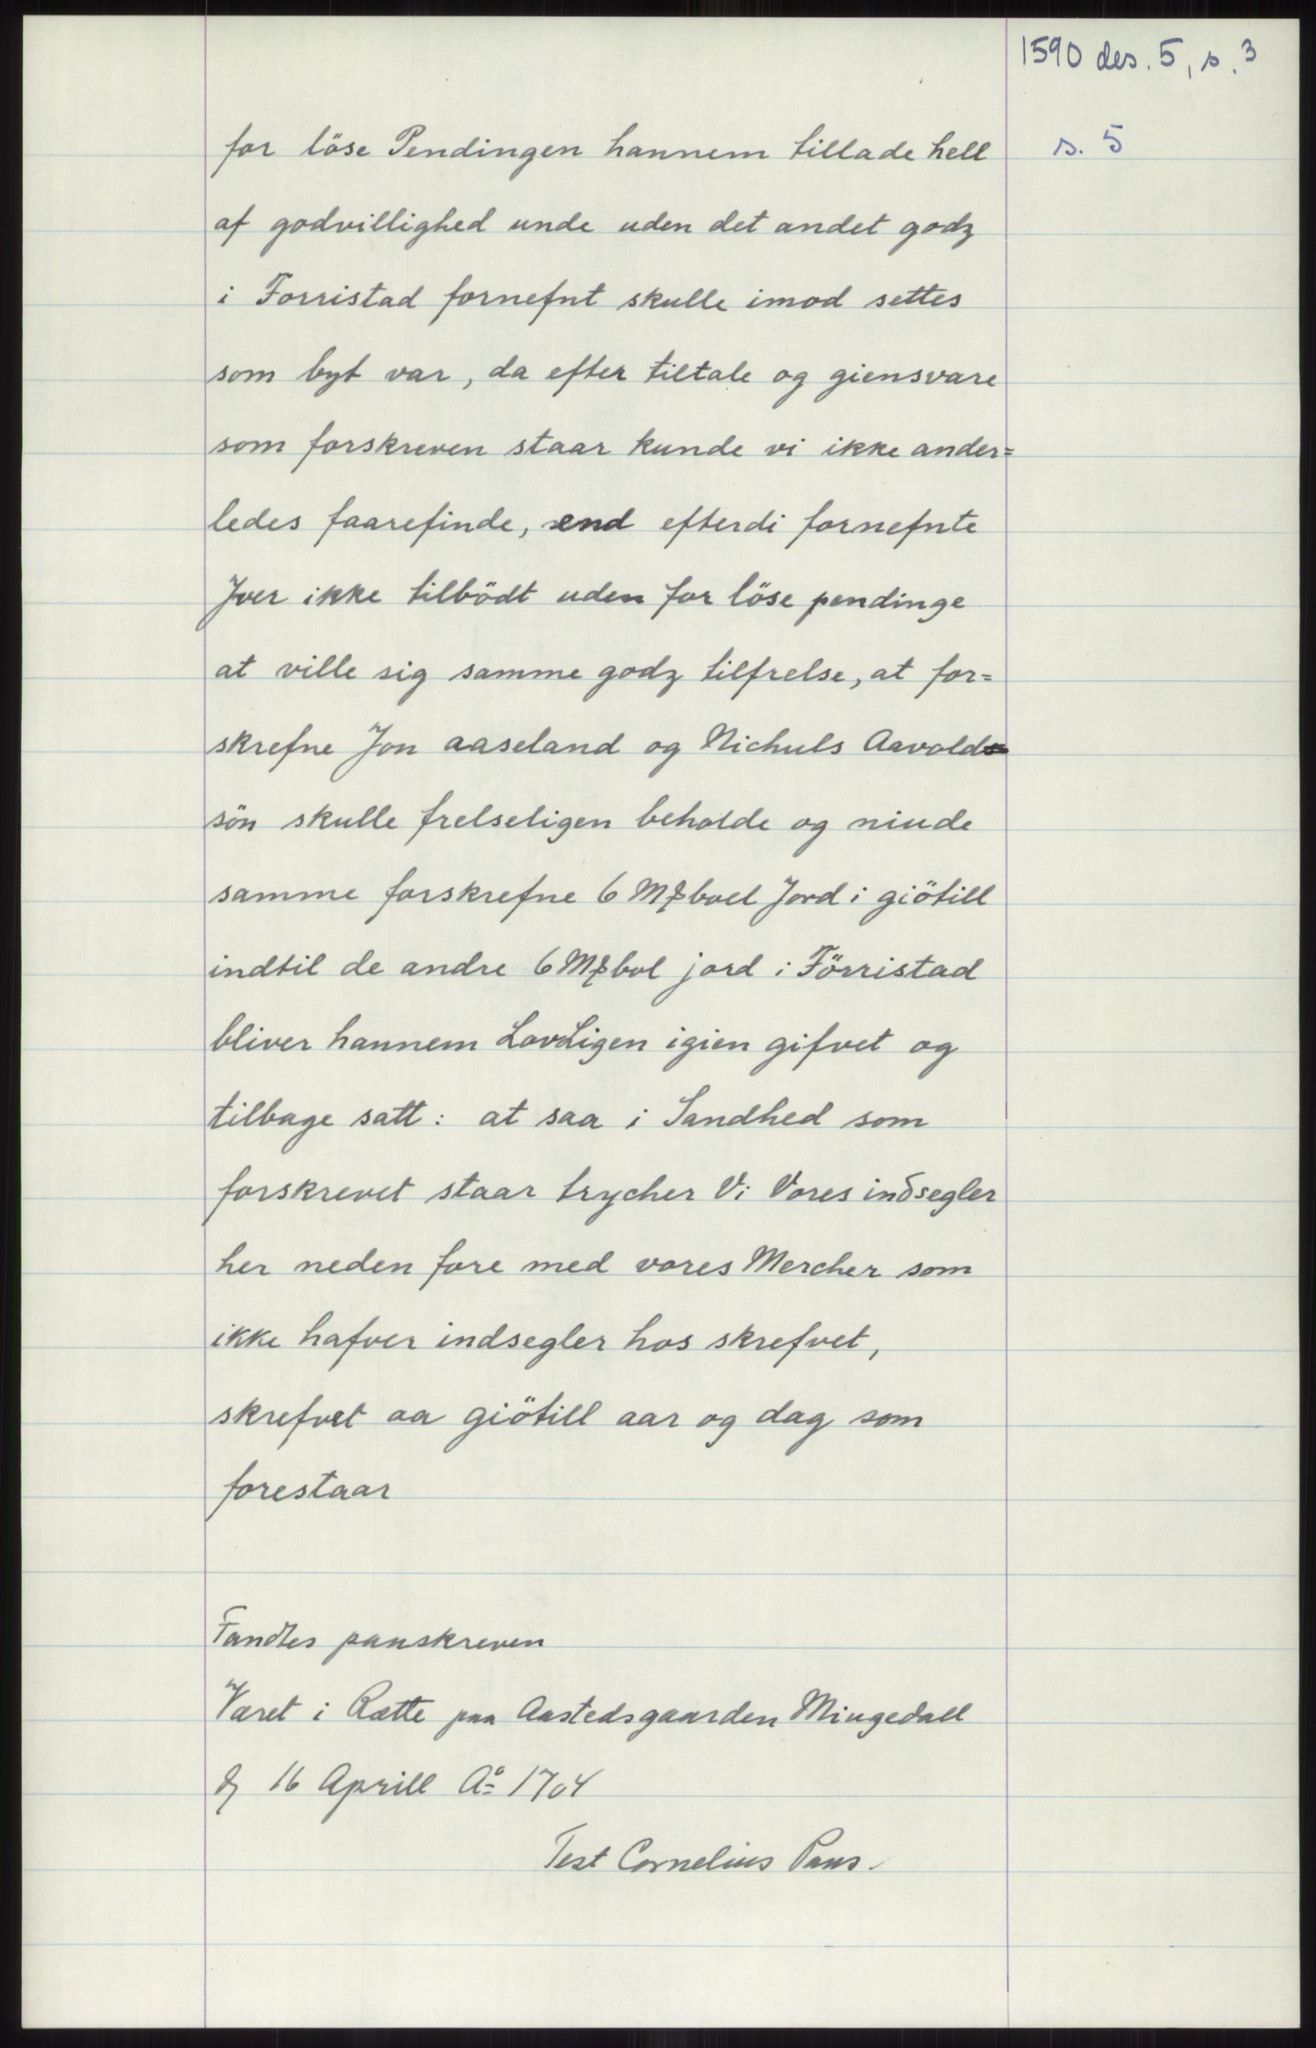 1590 des. 5, s. 3
s. 5
for löse Pendingen hannem tillade hell
af godvillighed unde uden det andet godz
i Forristad fornefnt skulle imod settes
som byt var, da efter tiltale og giensvare
som forskreven staar kunde vi ikke ander=
ledes faarefinde, end efterdi fornefnte
Jver ikke tilbödt uden for löse pendinge
at ville sig samme godz tilfrelse, at for=
skrefne Jon aaseland og Nichuls Aavold
sön skulle frelseligen beholde og niude
samme forskrefne 6 Mȝboel Jord i giötill
indtil de andre 6 Mȝbol jord i Förristad
bliver hannem LovLigen igien gifvet og
tilbage satt: at saa i Sandhed som
forskrevet staar trycher Vi Vores indsegler
her neden fore med vores Mercher som
ikke hafver indsegler hos skrefvet,
skrefvet aa giötill aar og dag som
forestaar
Fandtes paaskreven
Været i Rætte paa Aastedsgaarden Miugedall
d 16 Aprill Aº 1704
Test Cornelius Paus.